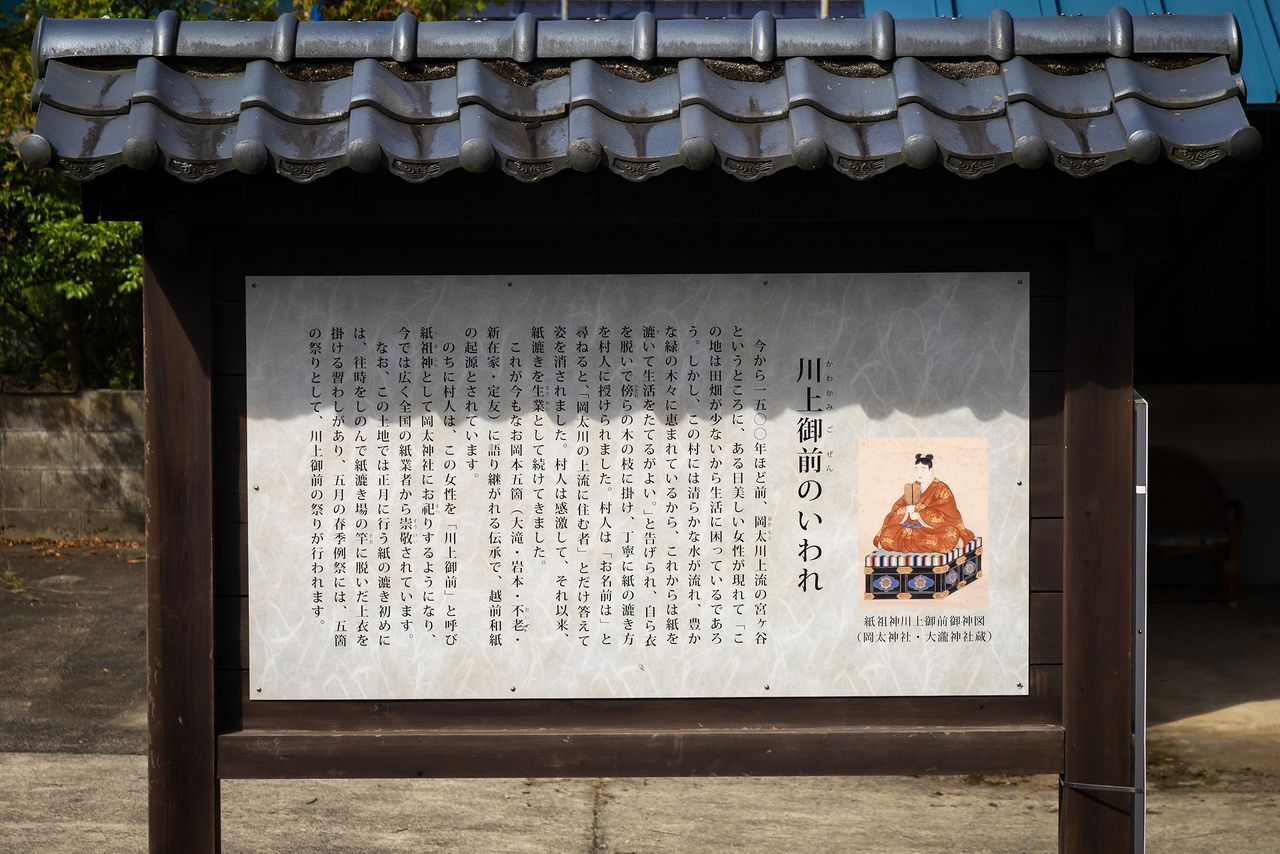 紙祖神川上御前御神図
(岡太神社・大瀧神社蔵)
川上御前のいわれ
かわかみごぜん
今から一五〇〇年ほど前、岡太川上流の宮ヶ谷
というところに、ある日美しい女性が現れて「こ
の地は田畑が少ないから生活に困っているであろ
う。しかし、この村には清らかな水が流れ、豊か
な緑の木々に恵まれているから、これからは紙を
漉いて生活をたてるがよい。」と告げられ、自ら衣
を脱いで傍らの木の枝に掛け、丁寧に紙の漉き方
を村人に授けられました。村人は「お名前は」と
尋ねると、「岡太川の上流に住む者」とだけ答えて
姿を消されました。村人は感激して、それ以来、
紙漉きを生業として続けてきました。
これが今もなお岡本五箇（大滝・岩本・不老・
新在家・定友）に語り継がれる伝承で、越前和紙
の起源とされています。
のちに村人は、この女性を「川上御前」と呼び
紙祖神として岡太神社にお祀りするようになり、
今では広く全国の紙業者から崇敬されています。
なお、この土地では正月に行う紙の漉き初めに
は、往時をしのんで紙漉き場の竿に脱いだ上衣を
掛ける習わしがあり、五月の春季例祭には、五箇
の祭りとして、川上御前の祭りが行われます。